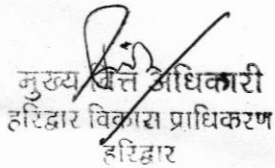 मुख्य वित्त अधिकारी
हरिद्वार विकास प्राधिकरण
हरिद्वार